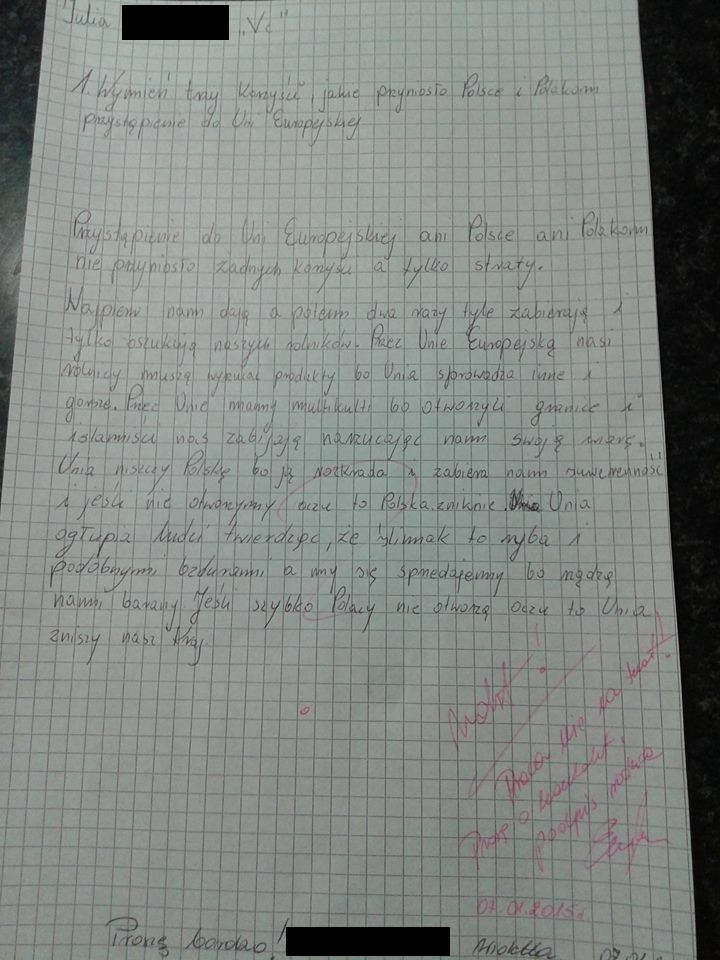 "Julia "Vc"
1. Wymień trzy korzyści, jakie przyniosło Polsce i Polakom
przystąpienie do Uni Europejskiej
Przystąpienie do Uni Europejskiej ani Polsce ani Polakom
nie przyniosło żadnych korzyści a tylko straty.
Najpierw nam dają a potem dwa razy tyle zabierają i
tylko oszukują naszych rolników. Przez Unie Europejską nasi
rolnicy muszą wyrzucać produkty bo Unia sprowadza inne i
gorsze. Przez Unie mamy multikulti bo otworzyli granice i
islamiści nas zabijają narzucając nam swoją wiarę.
Unia niszczy Polskę bo ją rozkrada i zabiera nam suwerenność
i jeśli nie otworzymy oczu to Polska zniknie. Unia
ogłupia ludzi twierdząc, że ślimak to ryba i
podobnymi bzdurami a my się sprzedajemy bo rządzą
nami barany Jeśli szybko Polacy nie otworzą oczu to Unia
zniszy nasz kraj.
Praca nie na temat!
Proszę o
podpis rodzica
07.01.2015r
Proszę bardzo! Arioletta 07.01